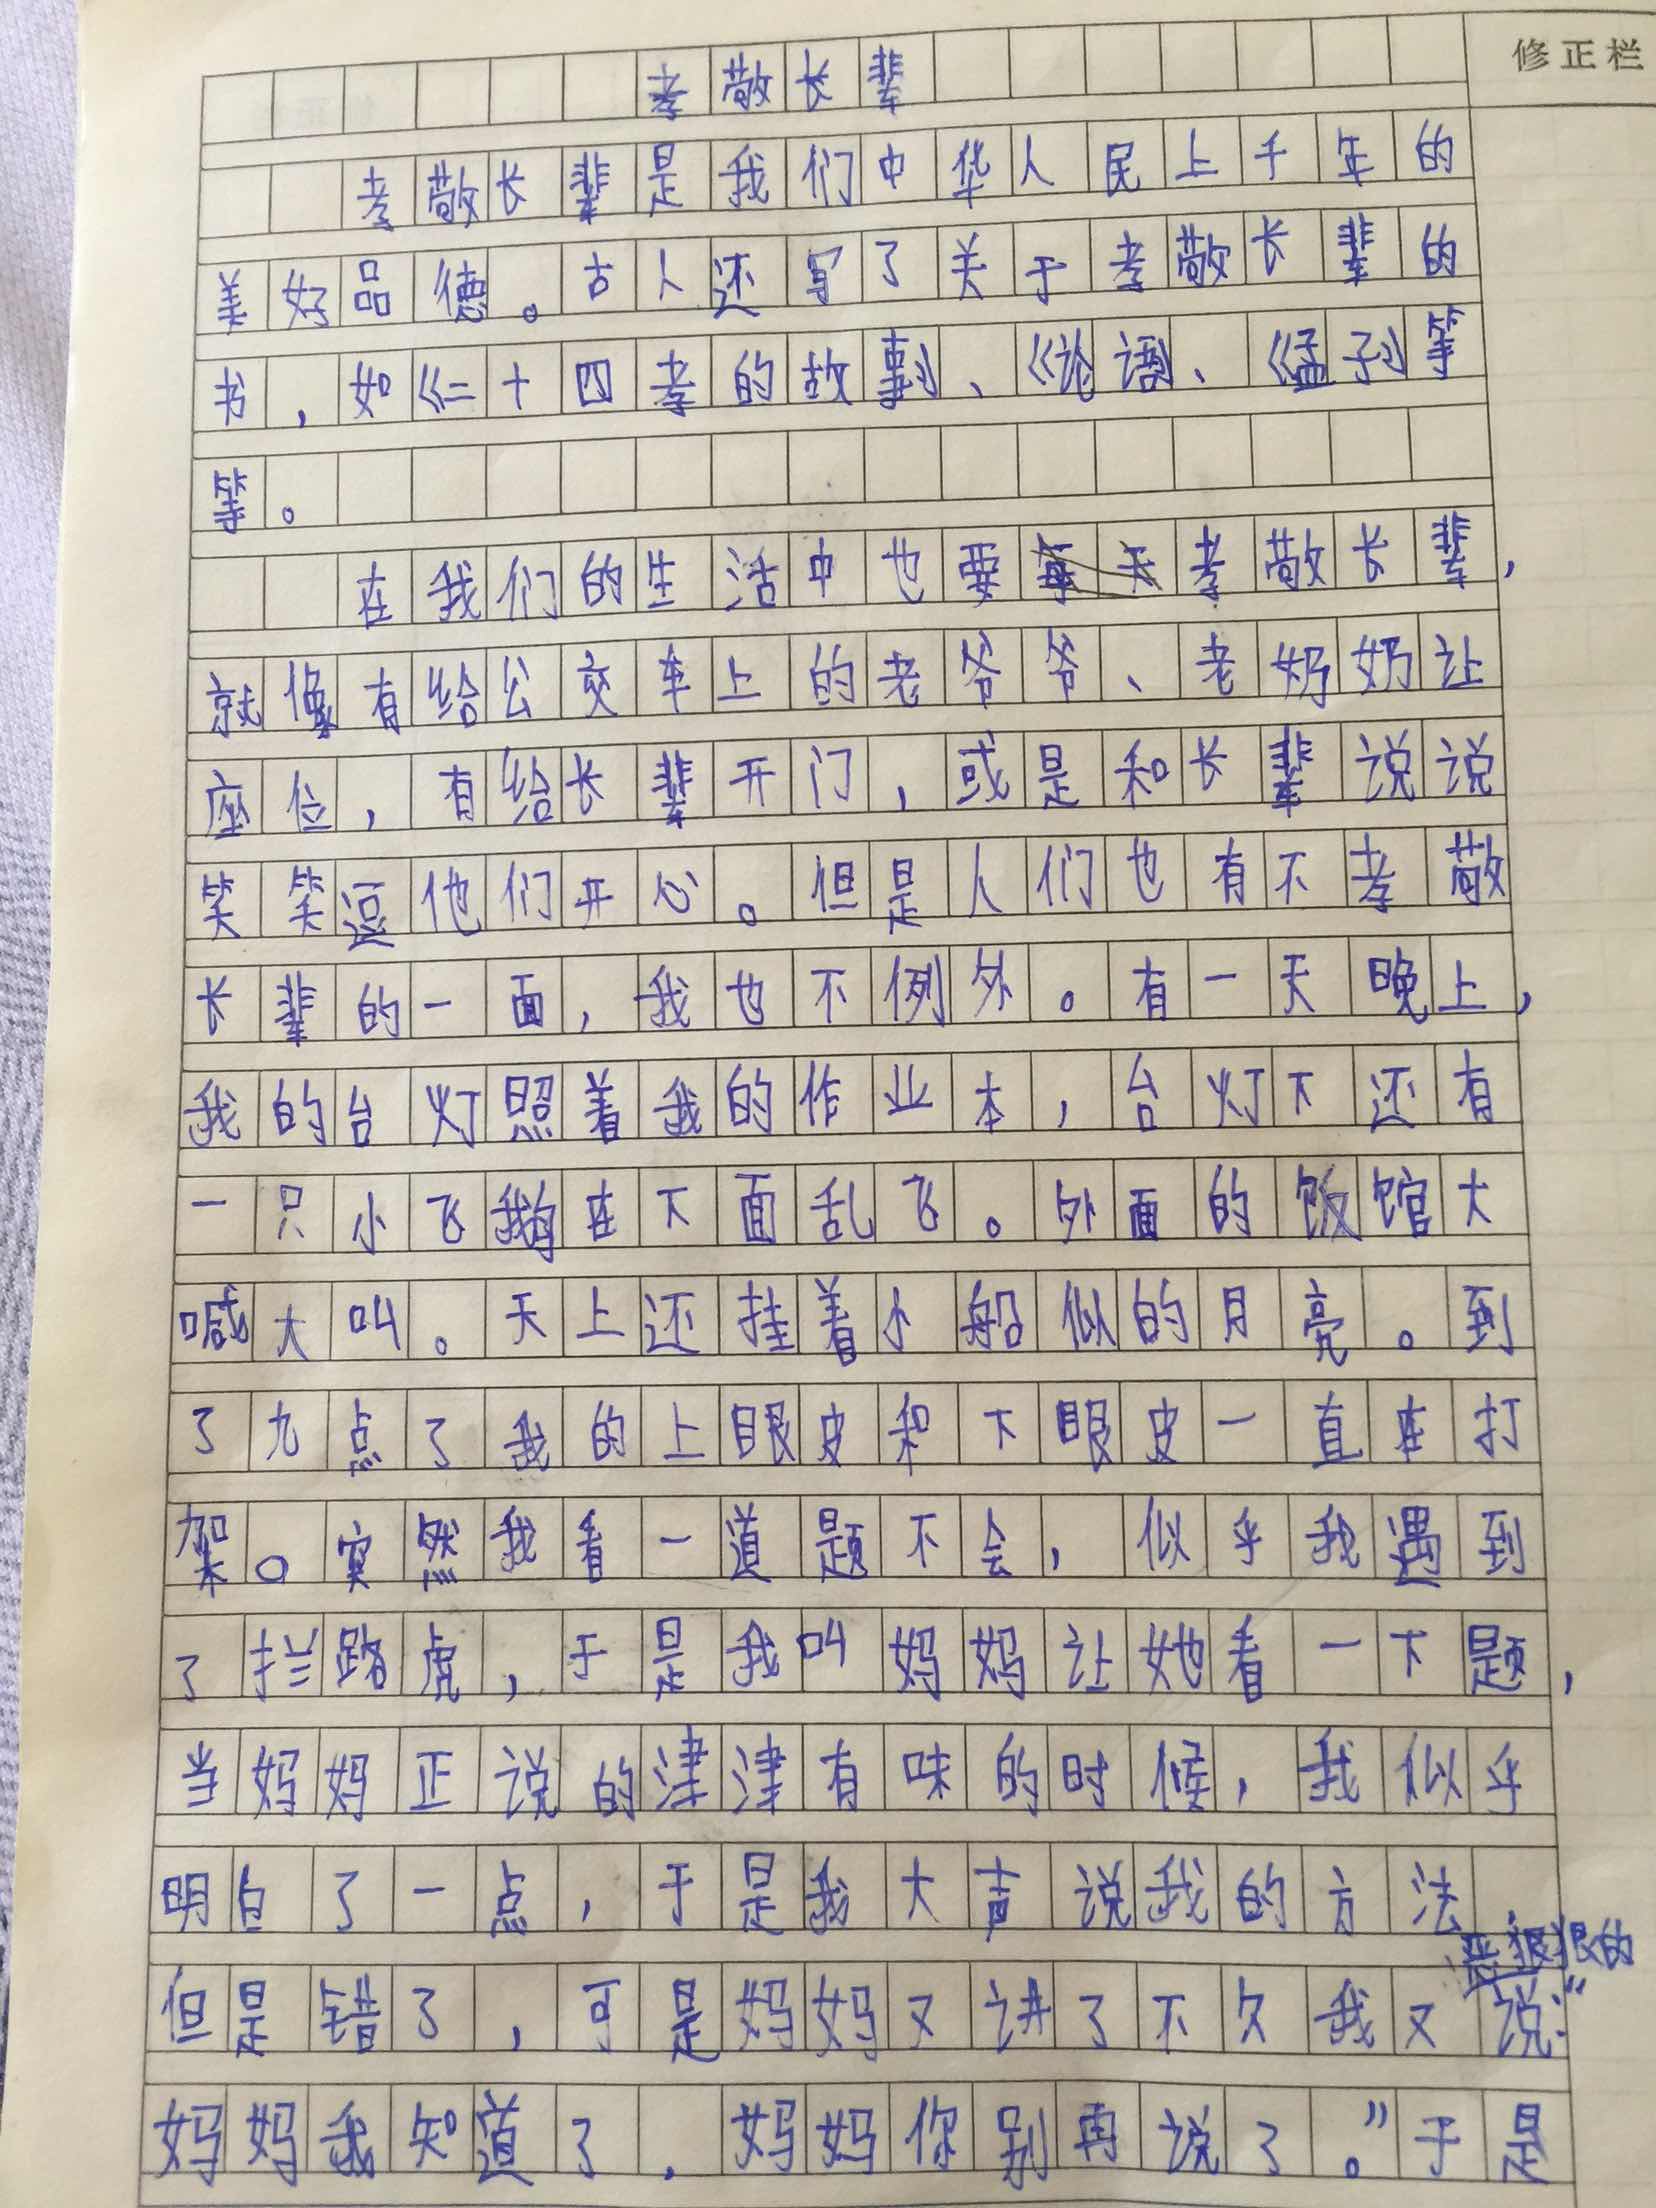 修正栏
孝敬长辈
孝敬长辈是我们中华人民上千年的
美好品德。古人还写了关于孝敬长辈的
书，如《二十四孝的故事》、《论语》、《孟子》等
等。
在我们的生活中也要孝敬长辈，
就像有给公交车上的老爷爷、老奶奶让
座位，有给长辈开门，或是和长辈说说
笑笑逗他们开心。但是人们也有不孝敬
长辈的一面，我也不例外。有一天晚上，
我的台灯照着我的作业本，台灯下还有
一只小飞鹅在下面乱飞。外面的饭馆大
喊大叫。天上还挂着小船似的月亮。到
了九点了我的上眼皮和下眼皮一直在打
架。突然我看一道题不会，似乎我遇到
了拦路虎，于是我叫妈妈让她看一下题，
当妈妈正说的津津有味的时候，我似乎
明白了一点，于是我大声说我的方法，
恶狠狠的
但是错了，可是妈妈又讲了不久我又说：“
妈妈我知道了，妈妈你别再说了。”于是